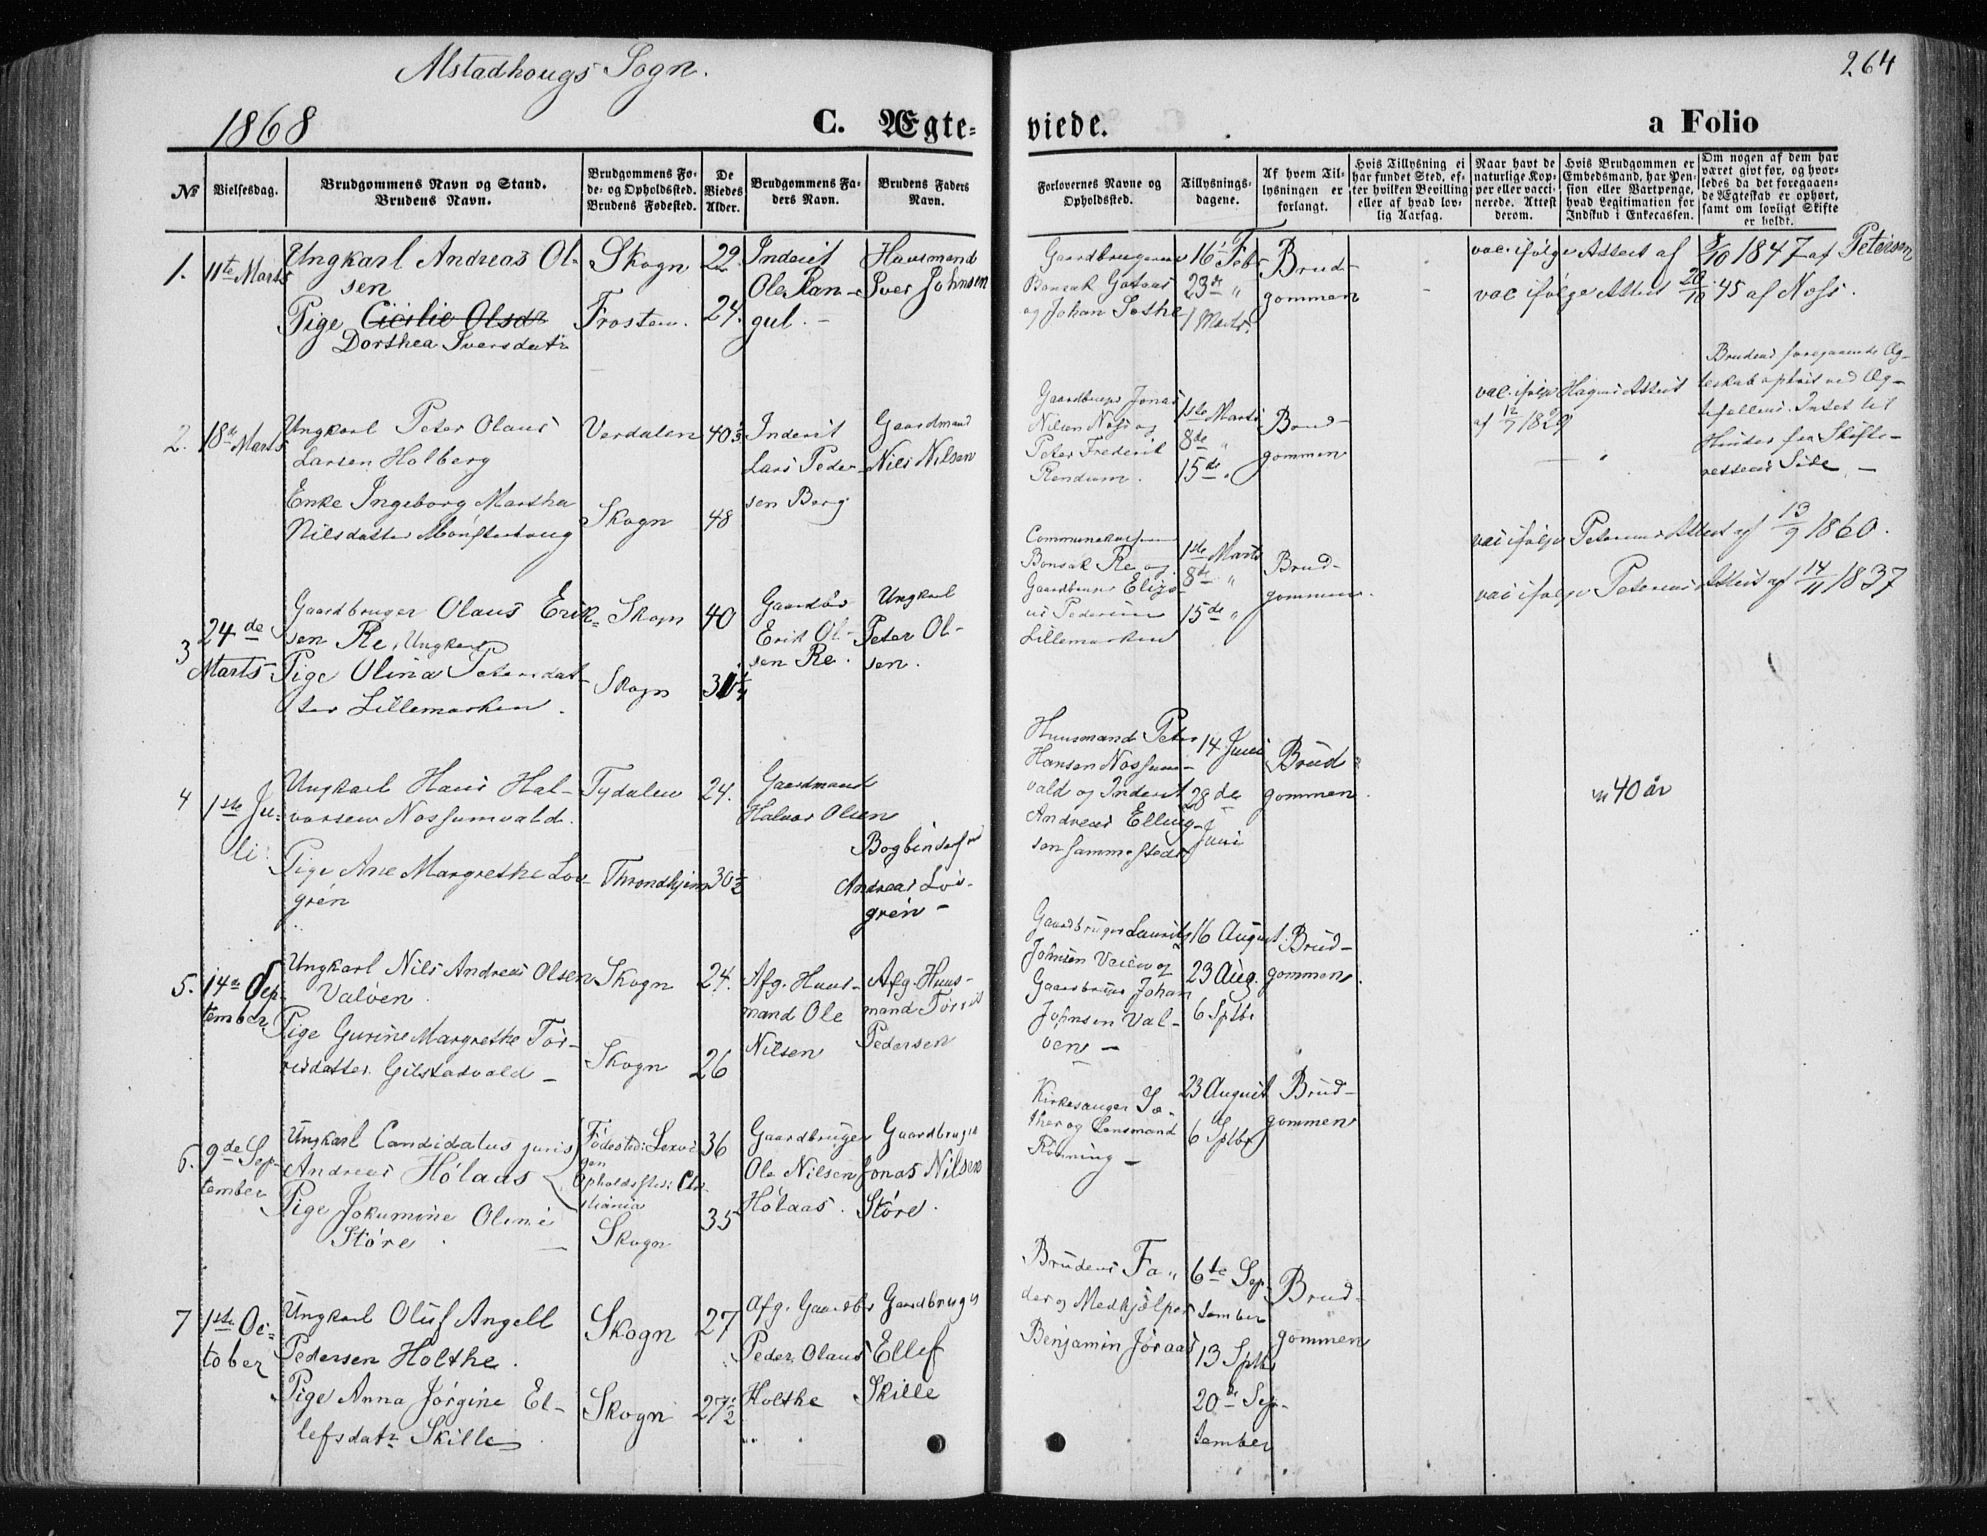 Alstadhougs Sogn.
264
1868
C. Ægte-
viede.
a Folio
№
Vielsesdag.
Brudgommens Navn og Stand.
Brudens Navn.
Brudgommens Fø-
de- og Opholdssted.
Brudens Fødested.
De
Viedes
Alder.
Brudgommens Fa-
ders Navn.
Brudens Faders
Navn.
Forlovernes Navne og
Opholdssted.
Tillysnings-
dagene.
Af hvem Til-
lysningen er
forlangt.
Hvis Tillysning ei
har fundet Sted, ef-
ter hvilken Bevilling
eller af hvad lov-
lig Aarsag.
Naar havt de
naturlige Kop-
per eller vacci-
nerede. Attest
derom.
Hvis Brudgommen er
Embedsmand, har Pen-
sion eller Vartpenge,
hvad Legitimation for
Indskud i Enkecassen.
Om nogen af dem har
været givt før, og hvor-
ledes da det foregaaen-
de Ægteskab er ophørt,
samt om lovligt Skifte
er holdt.
1.
11te Marts
Ungkarl Andreas Ol-
sen
Pige Cicilie Olsdr
Dorthea Iversdatr
Skogn
Frosten.
29
24.
Inderst
Ole Ran-
gul. -
Huusmand
Iver Johnsen
Gaardbrugerne
Bonsak
og Johan
16 Febr
23de "
1 Marts.
Brud-
gommen
vac. ifølge Attest af 8/10 1847 af Petersen
vac ifølge Attest 20/10 45 af Noss.
2.
18de Marts
Ungkarl Peter Olaus
Larsen Holberg
Enke Ingeborg Martha
Nilsdatter
Verdalen
Skogn
40
48
Inderst
Lars Peder-
sen Berg
Gaardmand
Nils Nilsen
Gaardbruger Jonas
Nilsen og
Peter Frederik
Rendum.
1ste Marts
8de "
15de "
Brud-
gommen
vac. ifølge Hagens Attest
af 12/7 1829
Brudens foregaaende Æg-
teskab ophørt ved Æg-
tefællens. Intet til
Hinder fra Skifte-
rettens Side -
3
24de
Marts
Gaardbruger Olaus Erik-
sen Re, Ungkarl
Pige Olina Petersdat-
ter Lillemarken.
Skogn
Skogn
40
31 1/4
Erik Ol-
sen Re.
Ungkarl
Peter Ol-
sen.
Bonsak Re og
Gaardbruger
Pedersen
Lillemarken
1ste Marts
8de "
15de "
Brud-
gommen.
vac ifølge Petersens Attest af 13/9 1860.
vac ifølge Petersens Attest af 14/11 1837
4
1ste Ju-
li
Ungkarl Hans Hal-
vorsen Nossumvald.
Pige Ane Margrethe Løv-
gren
Tydalen
Throndhjem
24.
30 1/2
Gaardmand
Halvor Olsen
Bogbinder
Andreas Løv-
gren -
Huusmand Peter
Hansen Nossum-
vald og Inderst
Andreas Elling-
sen sammesteds
14 Juni
28de
Juni
Brud-
gommen.
40 år
5.
14de Sep-
tember
Ungkarl Nils Andreas Olsen
Valöen
Pige Gurine Margrethe Tör-
risdatter Gilstadvald -
Skogn
Skogn
24.
26
Afg. Huus-
mand Ole
Nilsen
Afg. Huus-
mand Törris
Pedersen
Gaardbruger Laurits
Johnsen Veien og
Gaardbruger Johan
Johnsen Val-
öen -
16 August
23 Aug.
6 Sptbr
Brud-
gommen.
6.
9de Sep-
tember
Ungkarl Candidatus juris
Andreas Hölaas
Pige Jokumine Oline
Störe
Födested: Lexvi-
gen
Opholdssted: Chri-
stiania
Skogn
36
35
Gaardbruger
Ole Nilsen
Hölaas.
Gaardbruger
Jonas Nilsen
Störe.
Kirkesanger Sæ-
ther og Lensmand
Rönning -
23 August
6 Sptbr
Brud-
gommen
7
1ste Oc-
tober
Ungkarl Oluf Angell
Pedersen Holthe.
Pige Anna Jörgine El-
lefsdatr Skille
Skogn
Skogn
27
27 1/2
Afg. Gaardbr
Peder Olaus
Holthe
Gaardbruger
Ellef
Skille
Brudens Fa-
der og Medhjælper
Benjamin Jöraas
6te Sep-
tember
13 Sptbr
20de Sep-
tember
Brud-
gommen